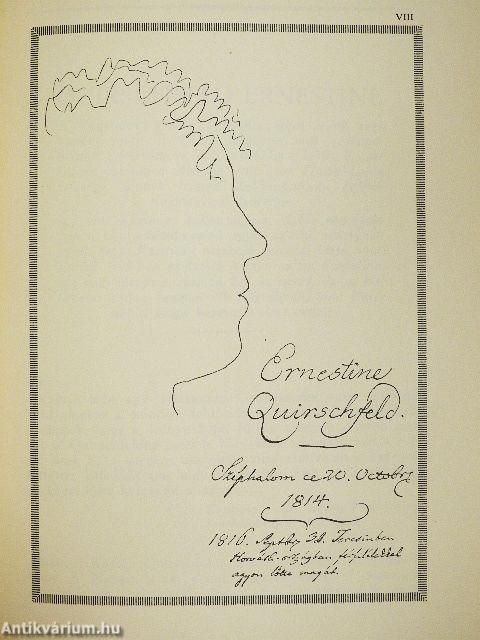 VIII
Ernestine
Quirschfeld.
Széphalom ce 20. Octobr
1814.
1816. Septbr Terezinban
Horváth-országban
agyon lőtte magát.
Antikvárium.hu